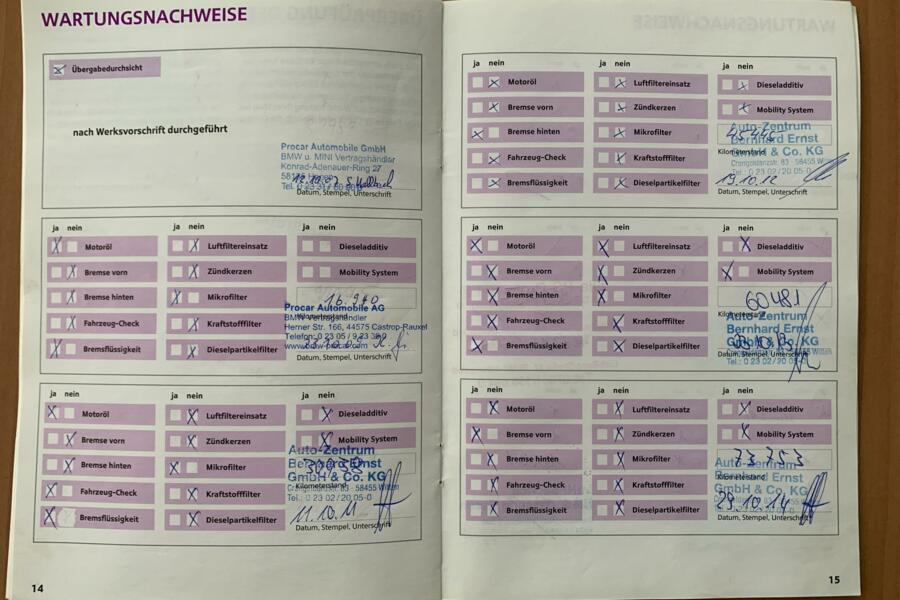 WARTUNGSNACHWEISE
Übergabedurchsicht
nach Werksvorschrift durchgeführt
Procar Automobile GmbH
BMW u. MINI Vertragshändler
Konrad-Adenauer-Ring 27
Datum, Stempel, Unterschrift
ja nein
ja nein
ja nein
Motoröl
Luftfiltereinsatz
Dieseladditiv
Bremse vorn
Zündkerzen
Mobility System
Bremse hinten
Mikrofilter
16.940
Procar Automobile AG
Kilometerstand
BMW Vertragshändler
Fahrzeug-Check
Kraftstofffilter
Herner Str. 166, 44575 Castrop-Rauxel
Bremsflüssigkeit
Dieselpartikelfilter
Datum, Stempel, Unterschrift
ja nein
ja nein
ja nein
Motoröl
Luftfiltereinsatz
Dieseladditiv
Bremse vorn
Zündkerzen
Mobility System
Auto-Zentrum
Bremse hinten
Mikrofilter
Bernhard Ernst
Kilometerstand
GmbH & Co. KG
Fahrzeug-Check
Kraftstofffilter
Tel.: 0 23 02 / 20 05-0
Bremsflüssigkeit
Dieselpartikelfilter
11.10.11
Datum, Stempel, Unterschrift
14
ja nein
ja nein
ja nein
Motoröl
Luftfiltereinsatz
Dieseladditiv
Bremse vorn
Zündkerzen
Mobility System
Auto-Zentrum
Bremse hinten
Mikrofilter
Bernhard Ernst
Kilometerstand
GmbH & Co. KG
Fahrzeug-Check
Kraftstofffilter
Tel.: 0 23 02 / 20 05-0
Bremsflüssigkeit
Dieselpartikelfilter
19.10.12
Datum, Stempel, Unterschrift
ja nein
ja nein
ja nein
Motoröl
Luftfiltereinsatz
Dieseladditiv
Bremse vorn
Zündkerzen
Mobility System
Bremse hinten
Mikrofilter
60481
Kilometerstand
Auto-Zentrum
Fahrzeug-Check
Kraftstofffilter
Bernhard Ernst
GmbH & Co. KG
Bremsflüssigkeit
Dieselpartikelfilter
Datum, Stempel, Unterschrift
Tel.: 0 23 02 / 20 05-0
ja nein
ja nein
ja nein
Motoröl
Luftfiltereinsatz
Dieseladditiv
Bremse vorn
Zündkerzen
Mobility System
Bremse hinten
Mikrofilter
73753
Auto-Zentrum
Kilometerstand
Bernhard Ernst
Fahrzeug-Check
Kraftstofffilter
GmbH & Co. KG
Bremsflüssigkeit
Dieselpartikelfilter
29.10.14
Datum, Stempel, Unterschrift
15